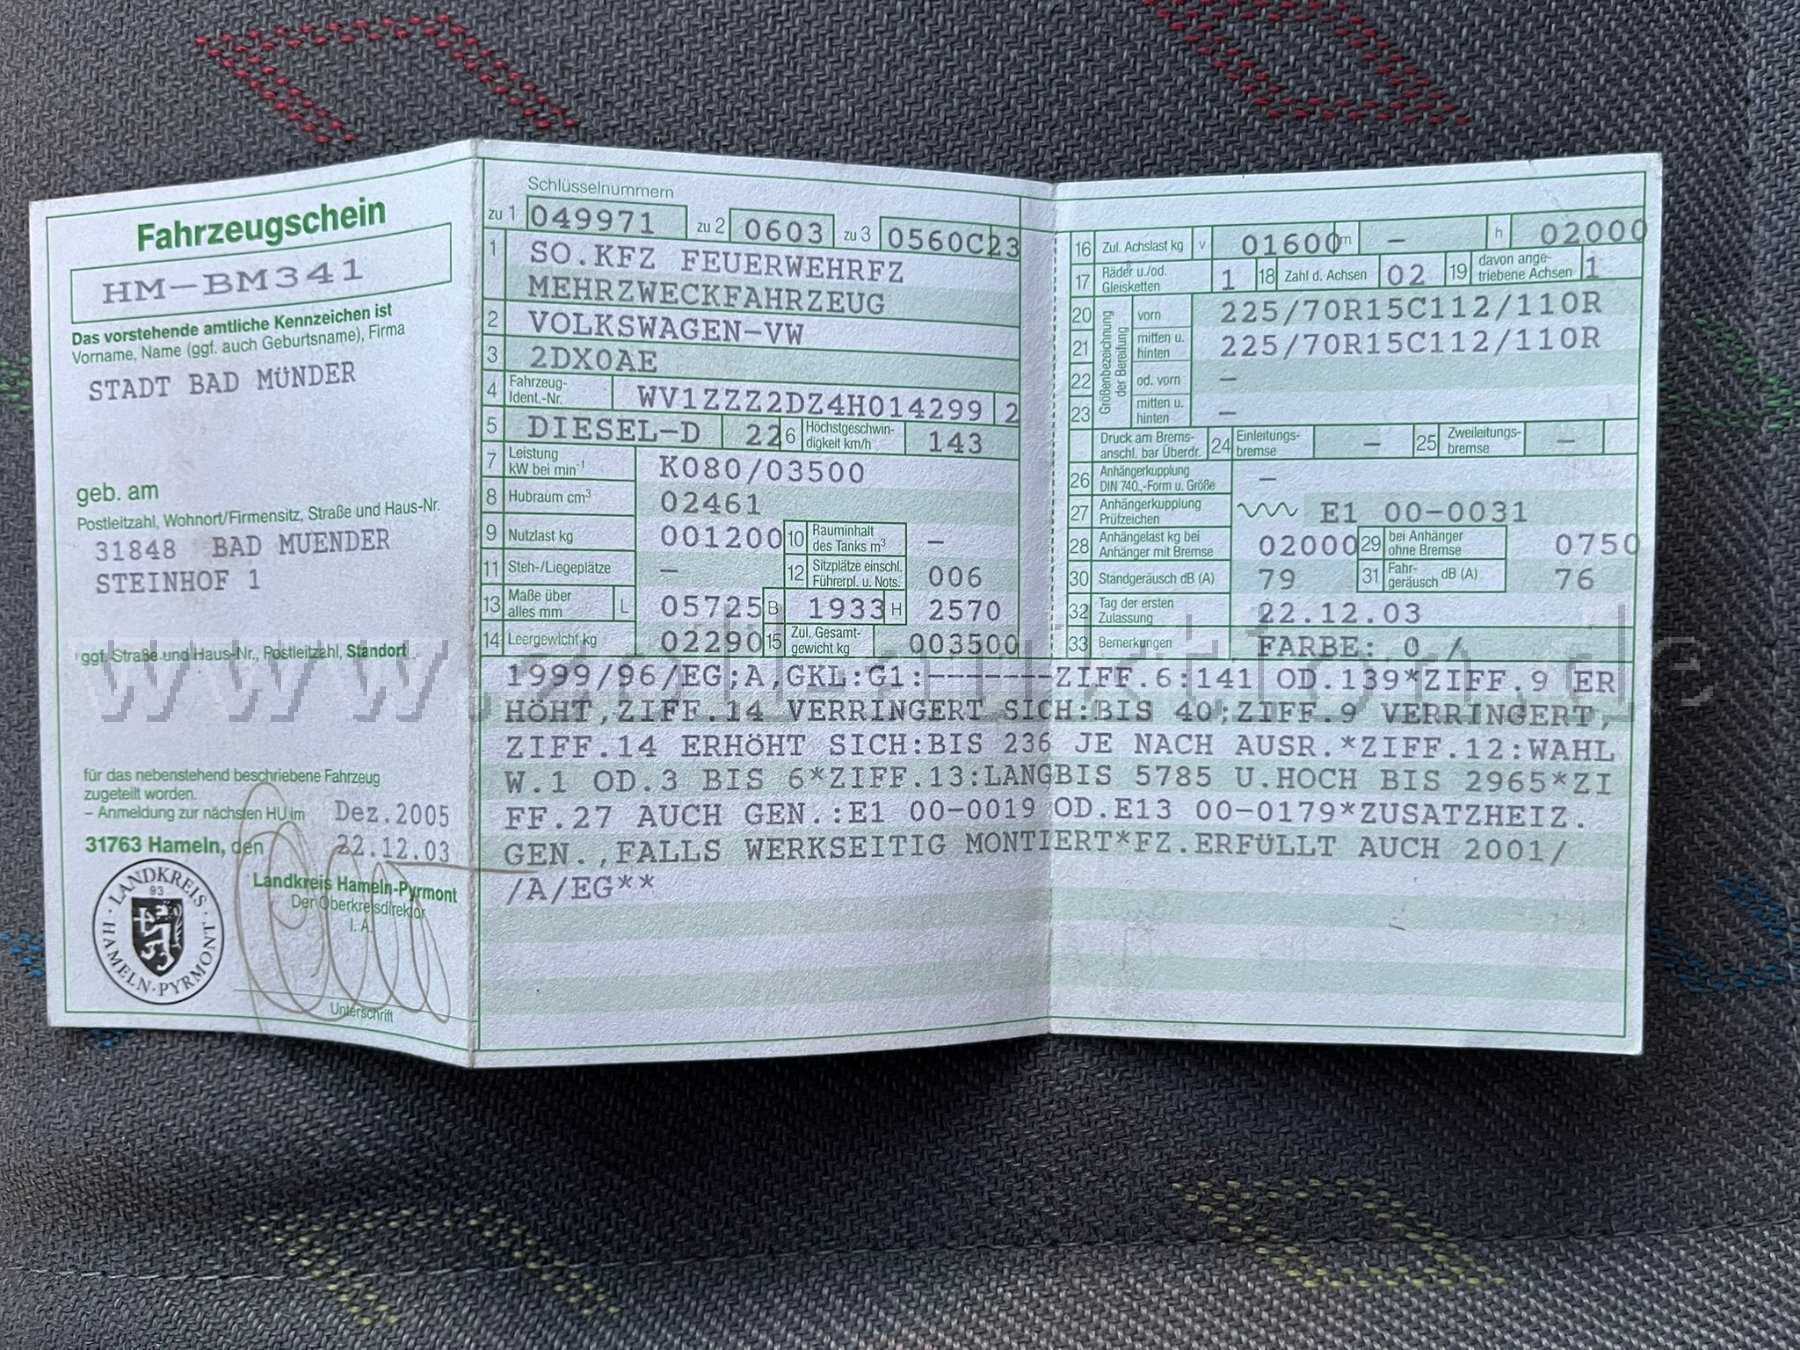 Fahrzeugschein
HM-BM341
Das vorstehende amtliche Kennzeichen ist
Vorname, Name (ggf. auch Geburtsname), Firma
STADT BAD MÜNDER
geb. am
Postleitzahl, Wohnort/Firmensitz, Straße und Haus-Nr.
31848 BAD MUENDER
STEINHOF 1
ggf. Straße und Haus-Nr., Postleitzahl, Standort
für das nebenstehend beschriebene Fahrzeug
zugeteilt worden.
– Anmeldung zur nächsten HU im Dez.2005
31763 Hameln, den 22.12.03
Landkreis Hameln-Pyrmont
Der Oberkreisdirektor
I. A.
LANDKREIS · HAMELN-PYRMONT ·
93
Unterschrift
Schlüsselnummern
zu 1 049971 zu 2 0603 zu 3 0560C23
1 SO.KFZ FEUERWEHRFZ
MEHRZWECKFAHRZEUG
2 VOLKSWAGEN-VW
3 2DX0AE
4 Fahrzeug-Ident.-Nr. WV1ZZZ2DZ4H014299 2
5 DIESEL-D 22 6 Höchstgeschwindigkeit km/h 143
7 Leistung kW bei min-1 K080/03500
8 Hubraum cm³ 02461
9 Nutzlast kg 001200 10 Rauminhalt des Tanks m³ –
11 Steh-/Liegeplätze – 12 Sitzplätze einschl. Führerpl. u. Nots. 006
13 Maße über alles mm L 05725 B 1933 H 2570
14 Leergewicht kg 02290 15 Zul. Gesamtgewicht kg 003500
16 Zul. Achslast kg v 01600 m – h 02000
17 Räder u./od. Gleisketten 1 18 Zahl d. Achsen 02 19 davon angetriebene Achsen 1
Größenbezeichnung der Bereifung
20 vorn 225/70R15C112/110R
21 mitten u. hinten 225/70R15C112/110R
22 od. vorn –
23 mitten u. hinten –
Druck am Bremsanschl. bar Überdr. 24 Einleitungsbremse – 25 Zweileitungsbremse –
26 Anhängerkupplung DIN 740.,-Form u. Größe –
27 Anhängerkupplung Prüfzeichen E1 00-0031
28 Anhängelast kg bei Anhänger mit Bremse 02000 29 bei Anhänger ohne Bremse 0750
30 Standgeräusch dB (A) 79 31 Fahrgeräusch dB (A) 76
32 Tag der ersten Zulassung 22.12.03
33 Bemerkungen FARBE: 0 /
1999/96/EG;A,GKL:G1:-------ZIFF.6:141 OD.139*ZIFF.9 ER
HÖHT,ZIFF.14 VERRINGERT SICH:BIS 40;ZIFF.9 VERRINGERT,
ZIFF.14 ERHÖHT SICH:BIS 236 JE NACH AUSR.*ZIFF.12:WAHL
W.1 OD.3 BIS 6*ZIFF.13:LANGBIS 5785 U.HOCH BIS 2965*ZI
FF.27 AUCH GEN.:E1 00-0019 OD.E13 00-0179*ZUSATZHEIZ.
GEN.,FALLS WERKSEITIG MONTIERT*FZ.ERFÜLLT AUCH 2001/
/A/EG**
www.zoll-auktion.de